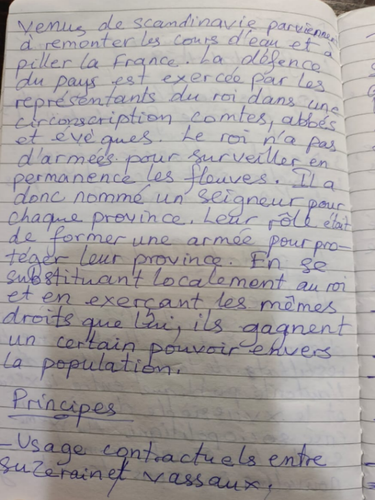 venus de scandinavie parviennent
à remonter les cours d'eau et à
piller la France. La défence
du pays est exercée par les
représentants du roi dans une
circonscription comtes, abbés
et évêques. Le roi n'a pas
d'armées pour surveiller en
permanence les fleuves. Il a
donc nommé un seigneur pour
chaque province. Leur rôle était
de former une armée pour pro-
téger leur province. En se
substituant localement au roi
et en exerçant les mêmes
droits que lui, ils gagnent
un certain pouvoir envers
la population.
Principes
- Usage contractuels entre
suzerain et vassaux.